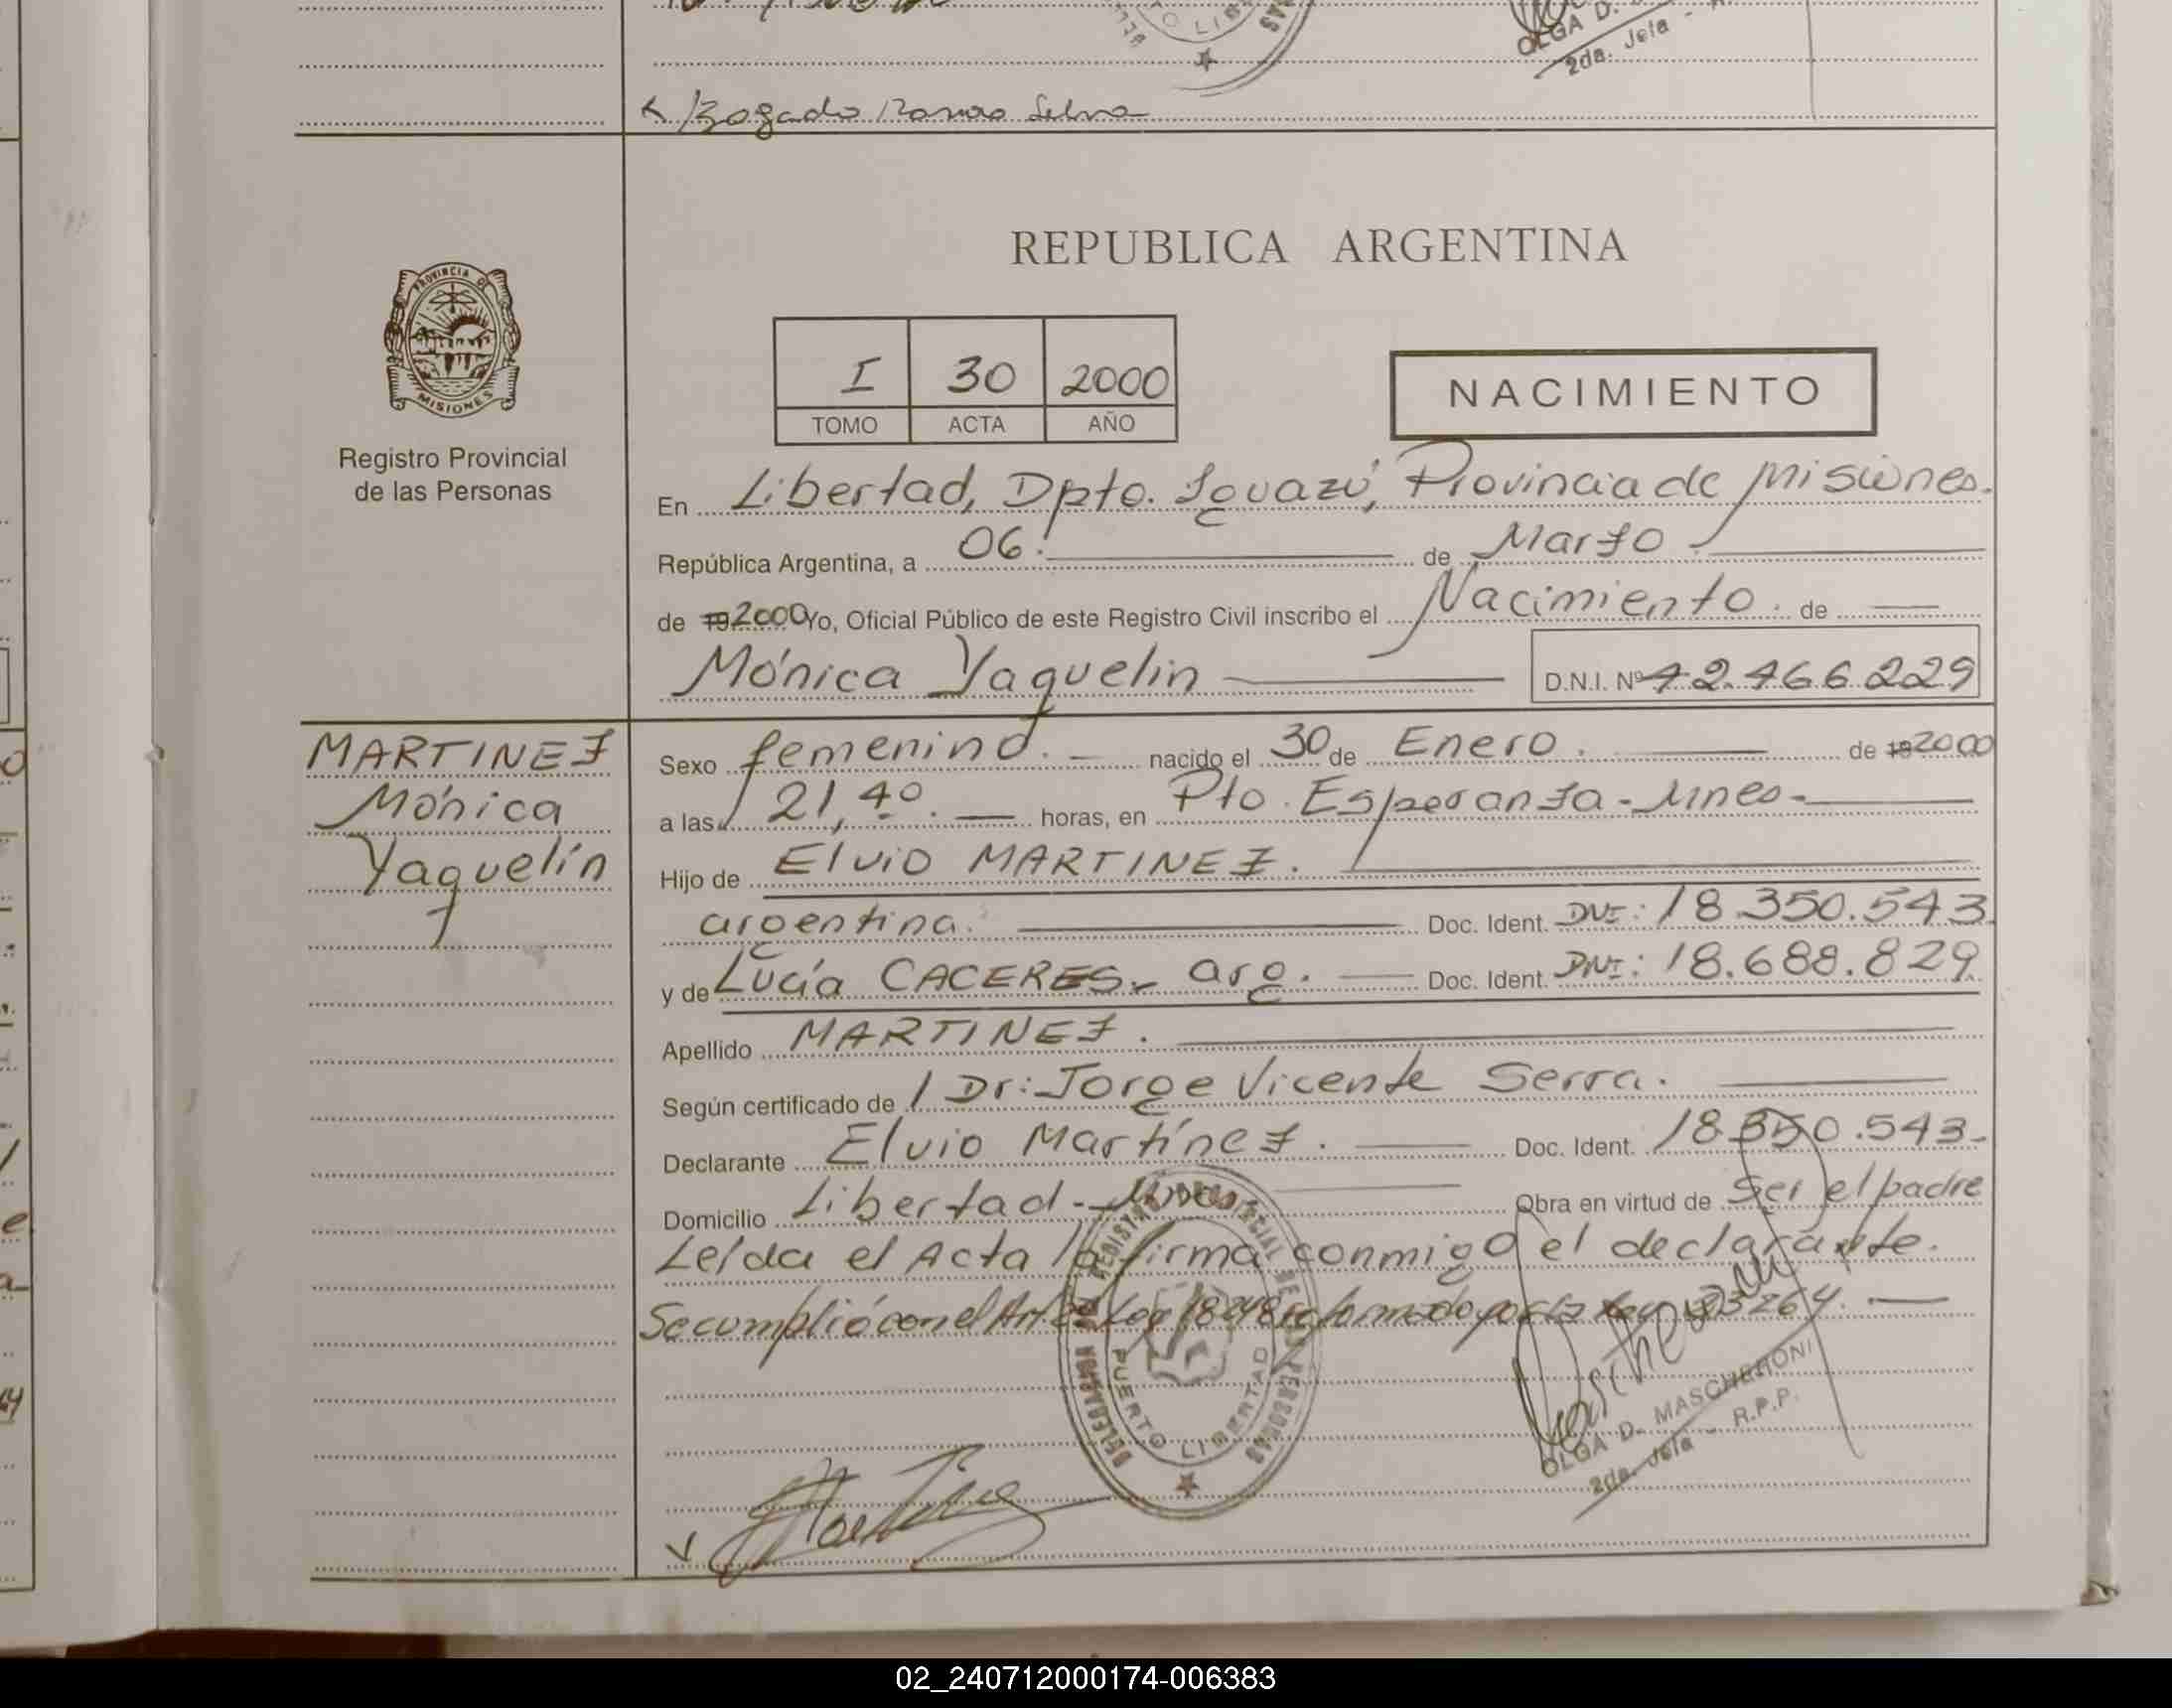 OLGA D.
2da. Jefa -
Bogado Ramao Selva
REPUBLICA ARGENTINA
PROVINCIA DE
MISIONES
Registro Provincial
de las Personas
I 30 2000
TOMO ACTA AÑO
NACIMIENTO
En Libertad, Dpto. Iguazú, Provincia de Misiones.
República Argentina, a 06. de Marzo.
de 19 2000 Yo, Oficial Público de este Registro Civil inscribo el Nacimiento. de
Mónica Yaquelin D.N.I. Nº 42.466.229
MARTINEZ
Mónica
Yaquelín
Sexo femenino. nacido el 30 de Enero. de 19 2000
a las 21,40. horas, en Pto. Esperanza - Mnes-
Hijo de Elvio MARTINEZ.
argentina. Doc. Ident. DNI: 18.350.543.
y de Lucía CACERES- arg. Doc. Ident. DNI: 18.688.829
Apellido MARTINEZ.
Según certificado de Dr: Jorge Vicente Serra.
Declarante Elvio Martínez. Doc. Ident. 18.350.543-
Domicilio Libertad - Mnes. Obra en virtud de Ser el padre
Leída el Acta la firma conmigo el declarante.
Se cumplió con el Art. Ley 18248 reformado por la Ley 23264.
DELEGACION REGISTRO PROVINCIAL DE LAS PERSONAS
PUERTO LIBERTAD
OLGA D. MASCHERONI
2da. Jefa - R.P.P.
02_240712000174-006383